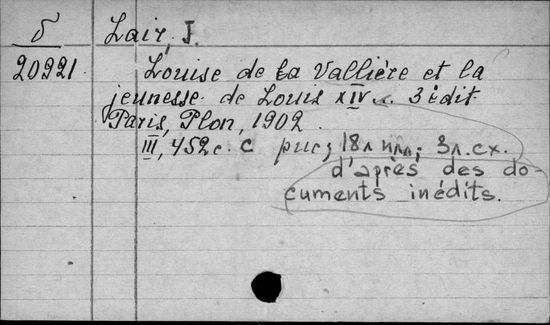 δ Lair, J.
20921. Louise de la Vallière et la
jeunesse de Louis XIV. 3 édit.
Paris, Plon, 1902.
III, 452 c. с рис; 18 л илл; 3 л. сх.
d'après des do-
cuments inédits.